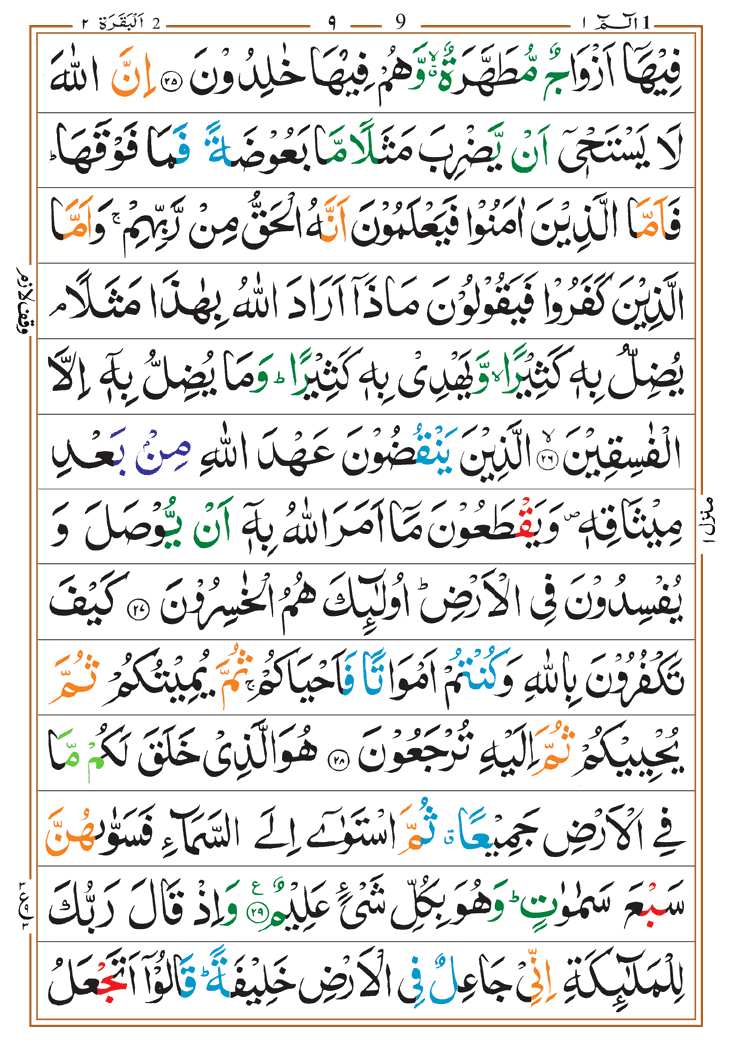 1 الٓمّٓ ١ 9 ٩ 2 اَلْبَقَرَة ٢
فِيْهَاۤ اَزْوَاجٌ مُّطَهَّرَةٌ ۙ وَّهُمْ فِيْهَا خٰلِدُوْنَ ۝٢٥ اِنَّ اللّٰهَ
لَا يَسْتَحْيٖۤ اَنْ يَّضْرِبَ مَثَلًا مَّا بَعُوْضَةً فَمَا فَوْقَهَا ؕ
فَاَمَّا الَّذِيْنَ اٰمَنُوْا فَيَعْلَمُوْنَ اَنَّهُ الْحَقُّ مِنْ رَّبِّهِمْ ۚ وَاَمَّا
الَّذِيْنَ كَفَرُوْا فَيَقُوْلُوْنَ مَاذَاۤ اَرَادَ اللّٰهُ بِهٰذَا مَثَلًا ۘ
وقف لازم
يُضِلُّ بِهٖ كَثِيْرًا ۙ وَّيَهْدِىْ بِهٖ كَثِيْرًا ؕ وَمَا يُضِلُّ بِهٖۤ اِلَّا
الْفٰسِقِيْنَ ۙ ۝٢٦ الَّذِيْنَ يَنْقُضُوْنَ عَهْدَ اللّٰهِ مِنْۢ بَعْدِ
مِيْثَاقِهٖ ۪ وَيَقْطَعُوْنَ مَاۤ اَمَرَ اللّٰهُ بِهٖۤ اَنْ يُّوْصَلَ وَ
منزل ١
يُفْسِدُوْنَ فِى الْاَرْضِ ؕ اُولٰٓئِكَ هُمُ الْخٰسِرُوْنَ ۝٢٧ كَيْفَ
تَكْفُرُوْنَ بِاللّٰهِ وَكُنْتُمْ اَمْوَاتًا فَاَحْيَاكُمْ ۚ ثُمَّ يُمِيْتُكُمْ ثُمَّ
يُحْيِيْكُمْ ثُمَّ اِلَيْهِ تُرْجَعُوْنَ ۝٢٨ هُوَ الَّذِىْ خَلَقَ لَكُمْ مَّا
فِى الْاَرْضِ جَمِيْعًا ۗ ثُمَّ اسْتَوٰۤى اِلَى السَّمَآءِ فَسَوّٰىهُنَّ
سَبْعَ سَمٰوٰتٍ ؕ وَهُوَ بِكُلِّ شَىْءٍ عَلِيْمٌ ۝٢٩ وَاِذْ قَالَ رَبُّكَ
لِلْمَلٰٓئِكَةِ اِنِّىْ جَاعِلٌ فِى الْاَرْضِ خَلِيْفَةً ؕ قَالُوْۤا اَتَجْعَلُ